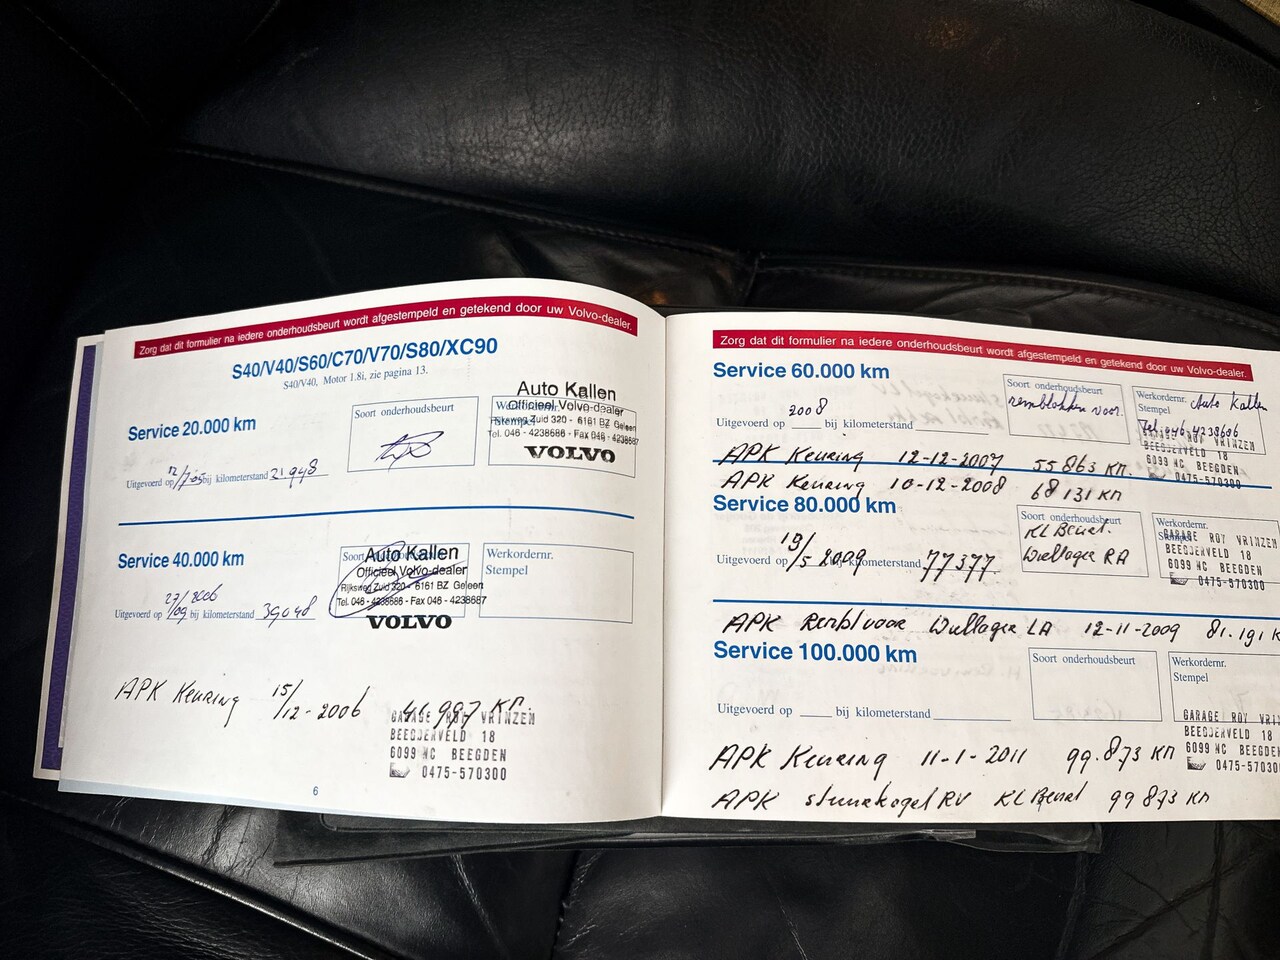 Zorg dat dit formulier na iedere onderhoudsbeurt wordt afgestempeld en getekend door uw Volvo-dealer.
S40/V40/S60/C70/V70/S80/XC90
S40/V40, Motor 1.8i, zie pagina 13.
Service 20.000 km
Soort onderhoudsbeurt
Werkordernr.
Stempel
Auto Kallen
Officieel Volvo-dealer
Rijksweg Zuid 320 - 6161 BZ Geleen
Tel. 046 - 4238686 - Fax 046 - 4238687
VOLVO
Uitgevoerd op bij kilometerstand 21948
Service 40.000 km
Soort
Auto Kallen
Officieel Volvo-dealer
Rijksweg Zuid 320 - 6161 BZ Geleen
Tel. 046 - 4238686 - Fax 046 - 4238687
VOLVO
Werkordernr.
Stempel
Uitgevoerd op 27/09 2006 bij kilometerstand 39048
APK Keuring 15/12-2006 41.997 KM.
GARAGE ROY VRINZEN
BEEGDERVELD 18
6099 NC BEEGDEN
0475-570300
6
Zorg dat dit formulier na iedere onderhoudsbeurt wordt afgestempeld en getekend door uw Volvo-dealer.
Service 60.000 km
Soort onderhoudsbeurt
remblokken voor.
Werkordernr. Auto Kallen
Stempel
Tel. 046-4238686
ROY VRINZEN
18
6099 NC BEEGDEN
0475-570300
Uitgevoerd op 2008 bij kilometerstand
APK Keuring 12-12-2007 55863 KM.
APK Keuring 10-12-2008 68131 KM
Service 80.000 km
Soort onderhoudsbeurt
KL Beurt.
Wiellager RA
Werkordernr.
Stempel
GARAGE ROY VRINZEN
BEEGDERVELD 18
6099 NC BEEGDEN
0475-570300
Uitgevoerd op 19/5 2009 bij kilometerstand 77377
APK Rembl voor Wiellager LA 12-11-2009 81.191 K
Service 100.000 km
Soort onderhoudsbeurt
Werkordernr.
Stempel
Uitgevoerd op bij kilometerstand
GARAGE ROY VRI
BEEGDERVELD 18
6099 NC BEEGD
0475-570
APK Keuring 11-1-2011 99.873 KM
APK stuurkogel RV KL Beurt 99873 KM